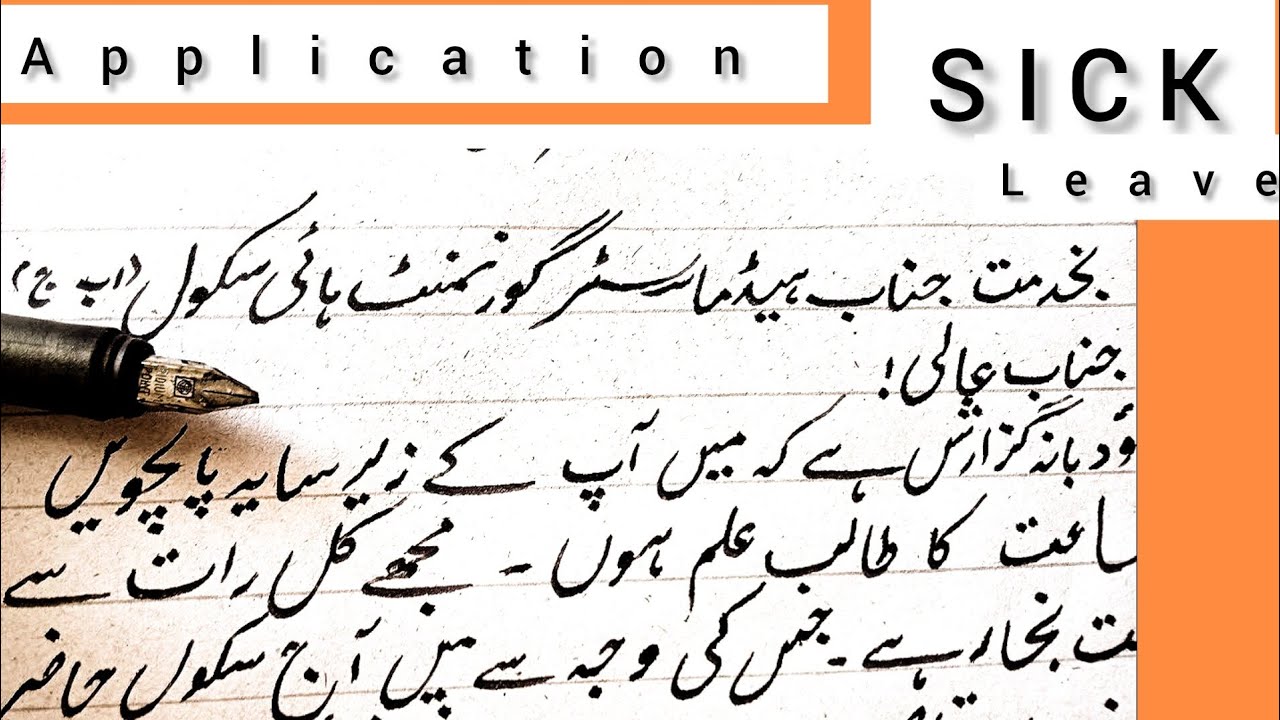 Application
SICK
Leave
بخدمت جناب ہیڈماسٹر گورنمنٹ ہائی سکول (اب ج)
جناب عالی!
ؤدبانہ گزارش ہے کہ میں آپ کے زیر سایہ پانچویں
ماعت کا طالب علم ہوں ۔ مجھے کل رات سے
ت بخار ہے ۔ جس کی وجہ سے میں آج سکول حاضر